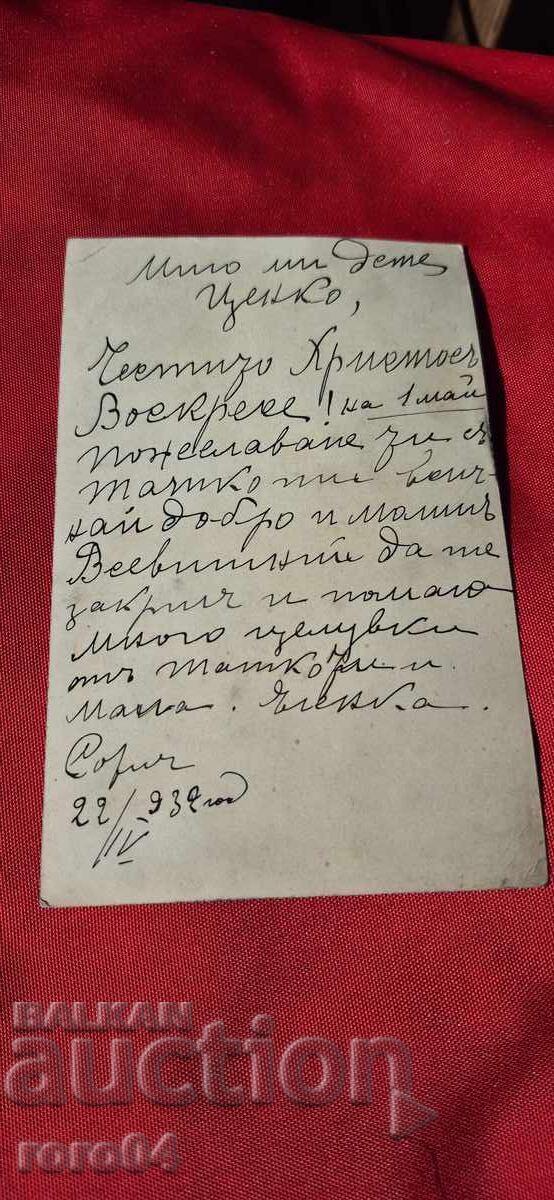 Мило ми дете
Ценко,
Честито Христосъ
Воскресе! на 1 май
пожелаваме ти съ
татко ти всич-
най добро и
Всевишний да те
закриля и помага
много целувки
отъ татко ти и
мама. Еленка.
София
22/IV 932 год
BALKAN
auction
roro04